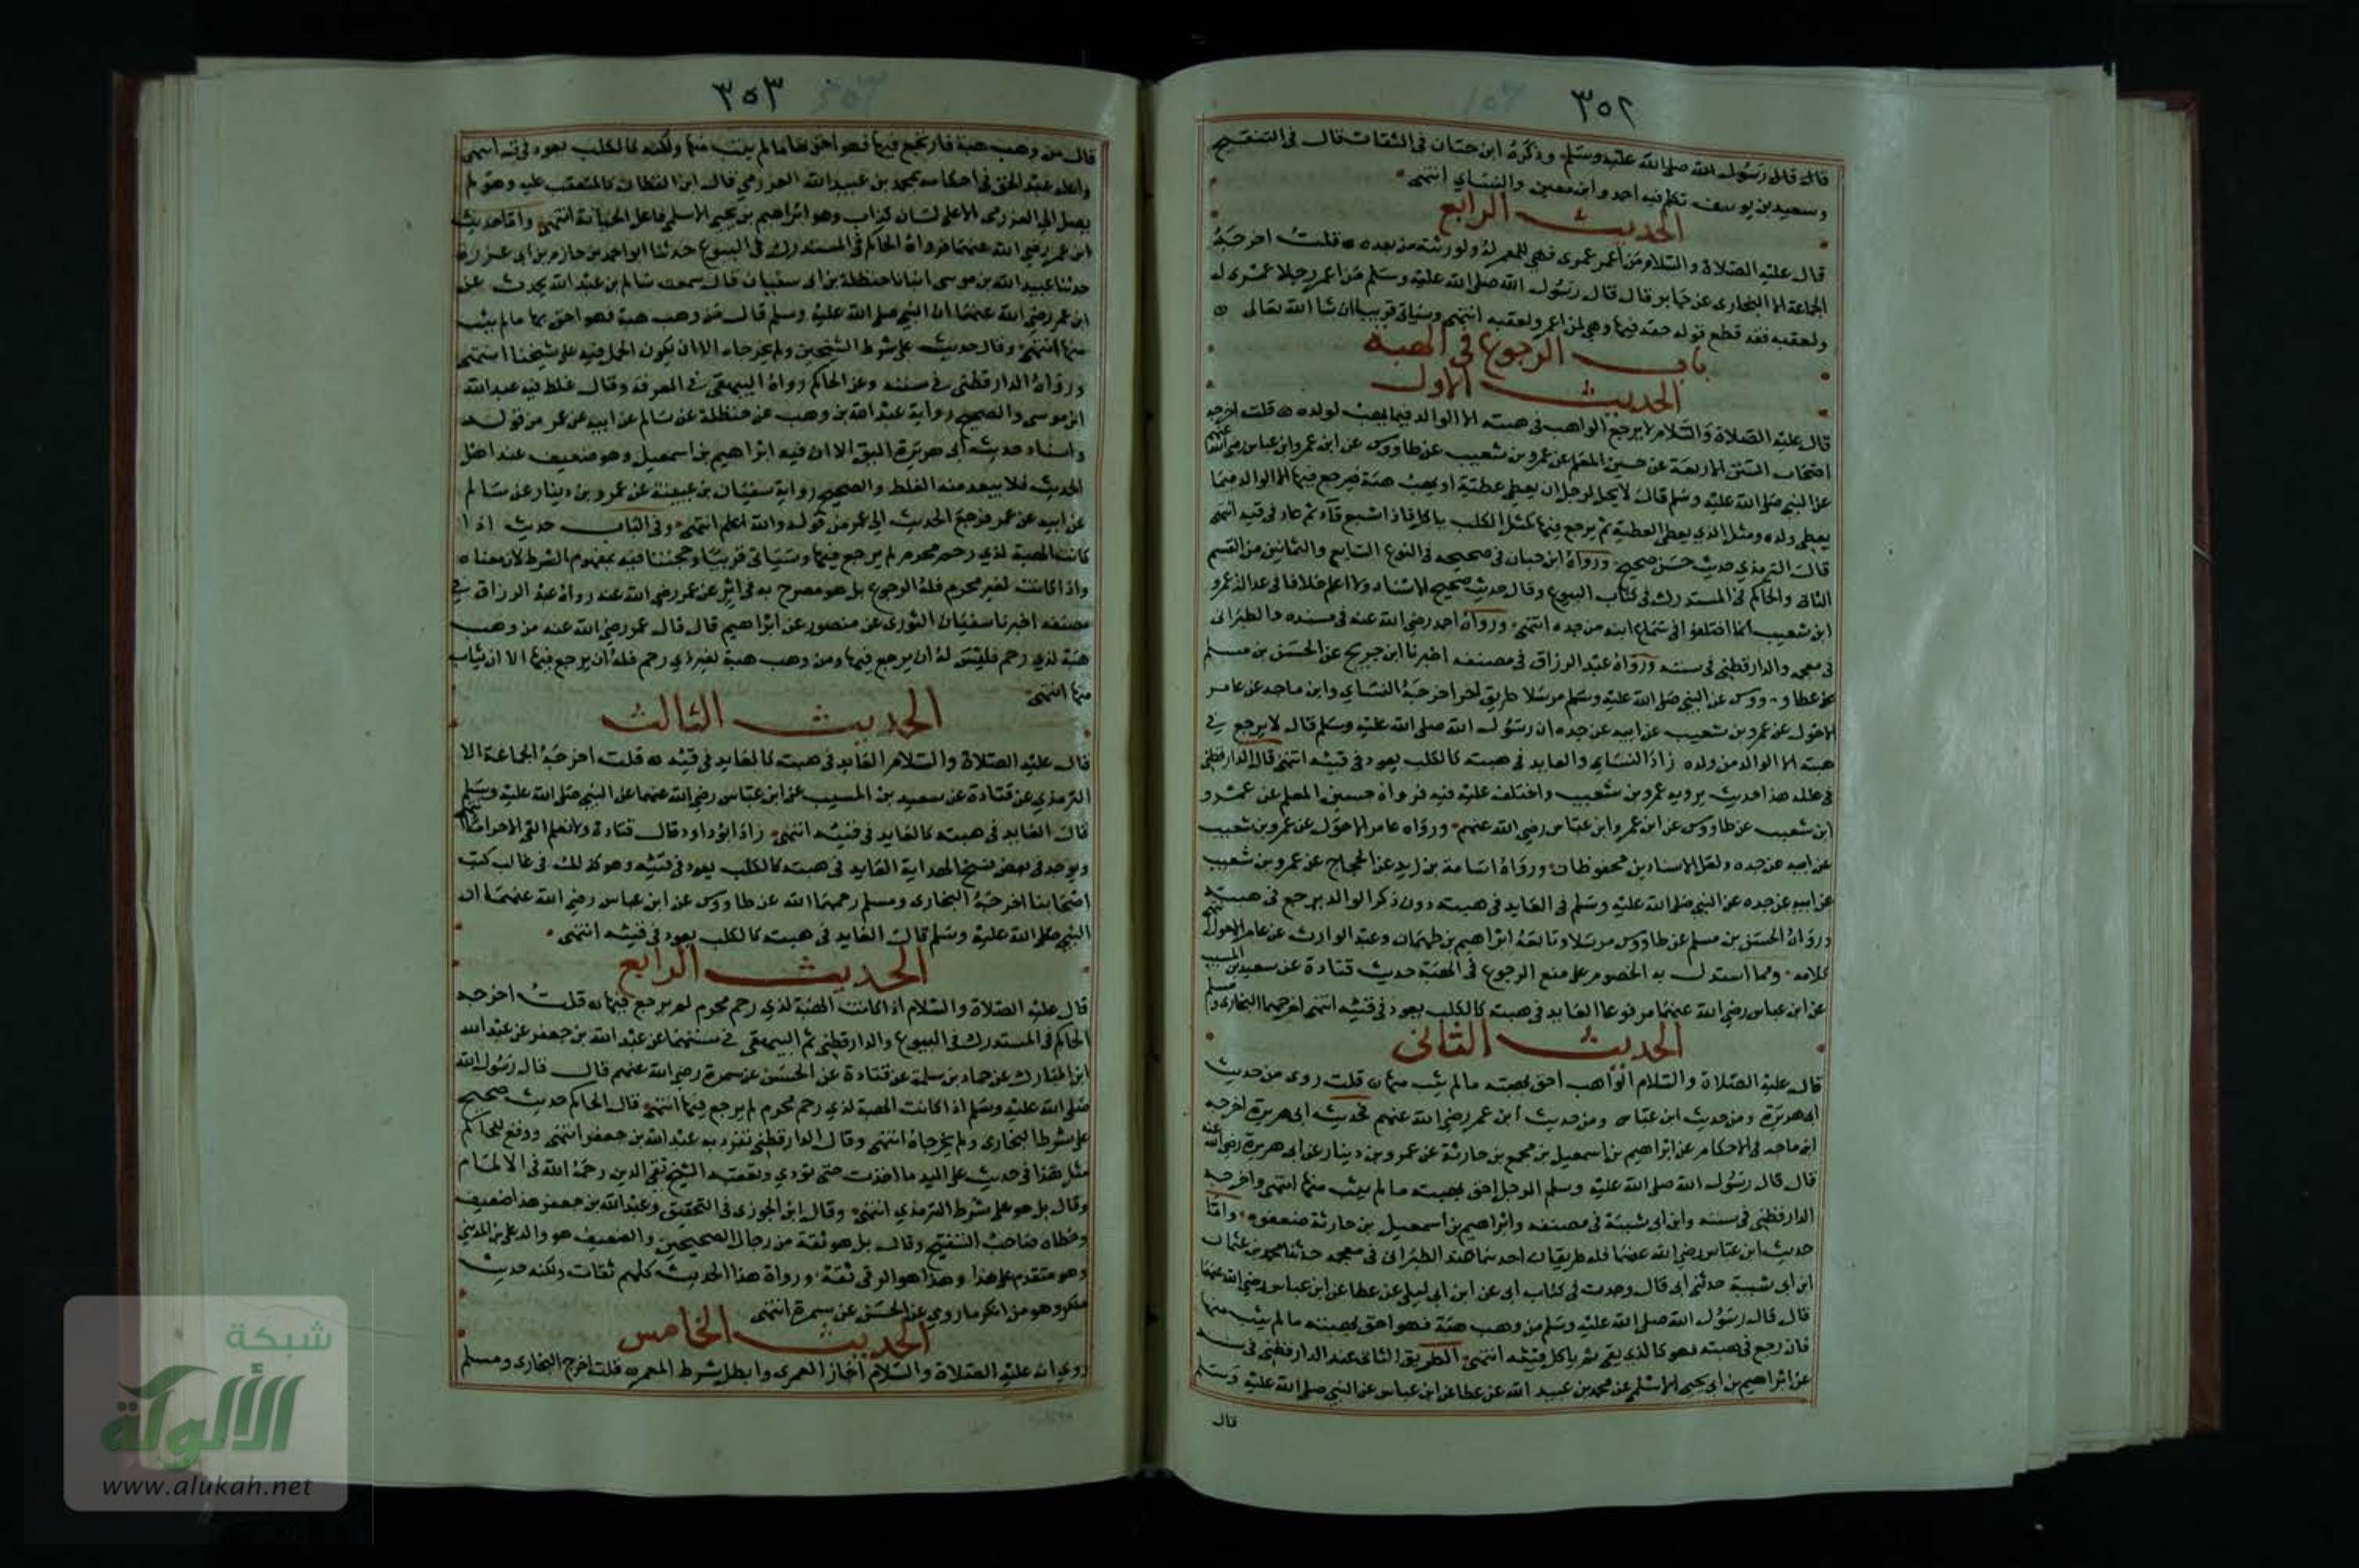 ٣٥٢
قال قال رسول الله صلى الله عليه وسلم وذكره ابن حبان في الثقات قال في التنقيح
وسعيد بن يوسف تكلم فيه احمد وابن معين والنساي انتهى
الحديث الرابع
قال عليه الصلاة والسلام من أعمر عمرى فهي للمعمر له ولورثته من بعده قلت اخرجه
الجماعة الا البخارى عن جابر قال قال رسول الله صلى الله عليه وسلم من اعمر رجلا عمرى له
ولعقبه فقد قطع قوله حقه فيها وهي لمن اعمر ولعقبه انتهى وسياتي قريبا ان شا الله تعالى
باب الرجوع في الهبة
الحديث الاول
قال عليه الصلاة والسلام لا يرجع الواهب في هبته الا الوالد فيما يهب لولده قلت اخرجه
اصحاب السنن الاربعة عن حسين المعلم عن عمرو بن شعيب عن طاووس عن ابن عمر وابن عباس رضي الله عنهم
عن النبي صلى الله عليه وسلم قال لا يحل لرجل ان يعطي عطية او يهب هبة فيرجع فيها الا الوالد فيما
يعطي ولده ومثل الذي يعطي العطية ثم يرجع فيها كمثل الكلب ياكل فاذا شبع قاء ثم عاد في قيه انتهى
قال الترمذي حديث حسن صحيح ورواه ابن حبان في صحيحه في النوع السابع والثمانين من القسم
الثاني والحاكم في المستدرك في كتاب البيوع وقال حديث صحيح الاسناد ولا اعلم خلافا في عدالة عمرو
ابن شعيب انما اختلفوا في سماع ابيه من جده انتهى ورواه احمد رضي الله عنه في مسنده والطبراني
في معجمه والدارقطني في سننه ورواه عبد الرزاق في مصنفه اخبرنا ابن جريج عن الحسن بن مسلم
عن طاووس عن النبي صلى الله عليه وسلم مرسلا طريق اخر اخرجه النساي وابن ماجه عن عامر
الاحول عن عمرو بن شعيب عن ابيه عن جده ان رسول الله صلى الله عليه وسلم قال لا يرجع في
هبته الا الوالد من ولده زاد النساي والعايد في هبته كالكلب يعود في قيئه انتهى قال الدارقطني
في علله هذا حديث يرويه عمرو بن شعيب واختلف عليه فيه فرواه حسين المعلم عن عمرو
ابن شعيب عن طاووس عن ابن عمر وابن عباس رضي الله عنهم ورواه عامر الاحول عن عمرو بن شعيب
عن ابيه عن جده ولعل الاسنادين محفوظان ورواه اسامة بن زيد عن الحجاج عن عمرو بن شعيب
عن ابيه عن جده عن النبي صلى الله عليه وسلم في العايد في هبته دون ذكر الوالد يرجع في هبته
ورواه الحسن بن مسلم عن طاووس مرسلا وتابعه ابراهيم بن طهمان وعبد الوارث عن عامر الاحول انتهى
كلامه ومما استدل به الخصوم على منع الرجوع في الهبة حديث قتادة عن سعيد بن المسيب
عن ابن عباس رضي الله عنهما مرفوعا العايد في هبته كالكلب يعود في قيئه انتهى اخرجهما البخارى ومسلم
الحديث الثاني
قال عليه الصلاة والسلام الواهب احق بهبته ما لم يثب منها قلت روى من حديث
ابى هريرة ومن حديث ابن عباس ومن حديث ابن عمر رضي الله عنهم فحديث ابى هريرة اخرجه
ابن ماجه في الاحكام عن ابراهيم بن اسمعيل بن مجمع بن حارثة عن عمرو بن دينار عن ابى هريرة رضي الله عنه
قال قال رسول الله صلى الله عليه وسلم الرجل احق بهبته ما لم يثب منها انتهى واخرجه
الدارقطني في سننه وابن ابى شيبة في مصنفه وابراهيم بن اسمعيل بن حارثة ضعفوه واما
حديث ابن عباس رضي الله عنهما فله طريقان احدهما عند الطبراني في معجمه حدثنا محمد بن عثمان
ابن ابى شيبة حدثني ابى قال وجدت في كتاب ابى عن ابن ابى ليلى عن عطا عن ابن عباس رضي الله عنهما
قال قال رسول الله صلى الله عليه وسلم من وهب هبة فهو احق بهبته ما لم يثب منها
فان رجع في هبته فهو كالذي يقيء ثم ياكل قيئه انتهى الطريق الثاني عند الدارقطني في سننه
عن ابراهيم بن ابى يحيى الاسلمي عن محمد بن عبيد الله عن عطا عن ابن عباس عن النبي صلى الله عليه وسلم
قال
٣٥٣
قال من وهب هبة فارتجع فيها فهو احق بها ما لم يثب منها ولكنه كالكلب يعود في قيه انتهى
واعله عبد الحق في احكامه بمحمد بن عبيد الله العزرمي قال ابن القطان كالمتعقب عليه وهو لم
يصل الى العزرمي الا على لسان كذاب وهو ابراهيم بن يحيى الاسلمي فلعل الجناية منه انتهى واما حديث
ابن عمر رضي الله عنهما فرواه الحاكم في المستدرك في البيوع حدثنا ابو احمد بن حازم بن ابى غرزة
حدثنا عبيد الله بن موسى انبانا حنظلة بن ابى سفيان قال سمعت سالم بن عبد الله يحدث عن
ابن عمر رضي الله عنهما ان النبي صلى الله عليه وسلم قال من وهب هبة فهو احق بها ما لم يثب
منها انتهى وقال حديث على شرط الشيخين ولم يخرجاه الا ان يكون الحمل فيه على شيخنا انتهى
ورواه الدارقطني في سننه وعن الحاكم رواه البيهقي في المعرفة وقال غلط فيه عبد الله
ابن موسى والصحيح رواية عبد الله بن وهب عن حنظلة عن سالم عن ابيه عن عمر من قوله
واسناد حديث أبى هريرة اليق الا ان فيه ابراهيم بن اسمعيل وهو ضعيف عند اهل
الحديث فلا يبعد منه الغلط والصحيح رواية سفيان بن عيينة عن عمرو بن دينار عن سالم
عن ابيه عن عمر فرجع الحديث الى عمر من قوله والله اعلم انتهى وفي الباب حديث اذا
كانت الهبة لذي رحم محرم لم يرجع فيها وسياتي قريبا وحجتنا فيه بمفهوم الشرط لان معناه
واذا كانت لغير محرم فله الرجوع بل هو مصرح به في اثر عن عمر رضي الله عنه رواه عبد الرزاق في
مصنفه اخبرنا سفيان الثورى عن منصور عن ابراهيم قال قال عمر رضي الله عنه من وهب
هبة لذي رحم فليس له ان يرجع فيها ومن وهب هبة لغير ذي رحم فله أن يرجع فيها الا ان يثاب
منها انتهى
الحديث الثالث
قال عليه الصلاة والسلام العايد في هبته كالعايد في قيئه قلت اخرجه الجماعة الا
الترمذي عن قتادة عن سعيد بن المسيب عن ابن عباس رضي الله عنهما عن النبي صلى الله عليه وسلم
قال العايد في هبته كالعايد في قيئه انتهى زاد ابو داود قال قتادة ولا نعلم القي الا حراما انتهى
ويوجد في بعض نسخ الهداية العايد في هبته كالكلب يعود في قيئه وهو كذلك في غالب كتب
اصحابنا اخرجه البخارى ومسلم رحمهما الله عن طاووس عن ابن عباس رضي الله عنهما ان
النبي صلى الله عليه وسلم قال العايد في هبته كالكلب يعود في قيئه انتهى
الحديث الرابع
قال عليه الصلاة والسلام اذا كانت الهبة لذي رحم محرم لم يرجع فيها قلت اخرجه
الحاكم في المستدرك في البيوع والدارقطني ثم البيهقي في سننهما عن عبد الله بن جعفر عن عبد الله
ابن المبارك عن حماد بن سلمة عن قتادة عن الحسن عن سمرة رضي الله عنهم قال قال رسول الله
صلى الله عليه وسلم اذا كانت الهبة لذي رحم محرم لم يرجع فيها انتهى قال الحاكم حديث صحيح
على شرط البخارى ولم يخرجاه انتهى وقال الدارقطني تفرد به عبد الله بن جعفر انتهى ووقع للحاكم
مثل هذا في حديث على اليد ما اخذت حتى تؤدي وتعقبه الشيخ تقي الدين رحمه الله في الالمام
وقال بل هو على شرط الترمذي انتهى وقال ابن الجوزى في التحقيق وعبد الله بن جعفر هذا ضعيف
وخطاه صاحب التنقيح وقال بل هو ثقة من رجال الصحيحين والضعيف هو والد علي بن المديني
وهو متقدم على هذا وهذا هو الرقي ثقة ورواة هذا الحديث كلهم ثقات ولكنه حديث
منكر وهو من انكر ما روي عن الحسن عن سمرة انتهى
الحديث الخامس
روي انه عليه الصلاة والسلام أجاز العمرى وابطل شرط المعمر قلت اخرج البخارى ومسلم
شبكة
الألوكة
www.alukah.net